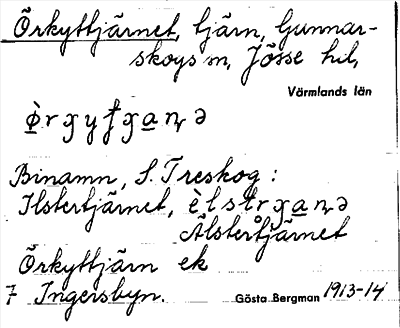 Örkyttjärnet, tjärn, Gunnar-
skogs sn, Jösse hd,
Värmlands län
Binamn, S. Treskog:
Ilstertjärnet,
Älstertjärnet
Örkyttjärn ek
7 Ingersbyn.
Gösta Bergman 1913-14